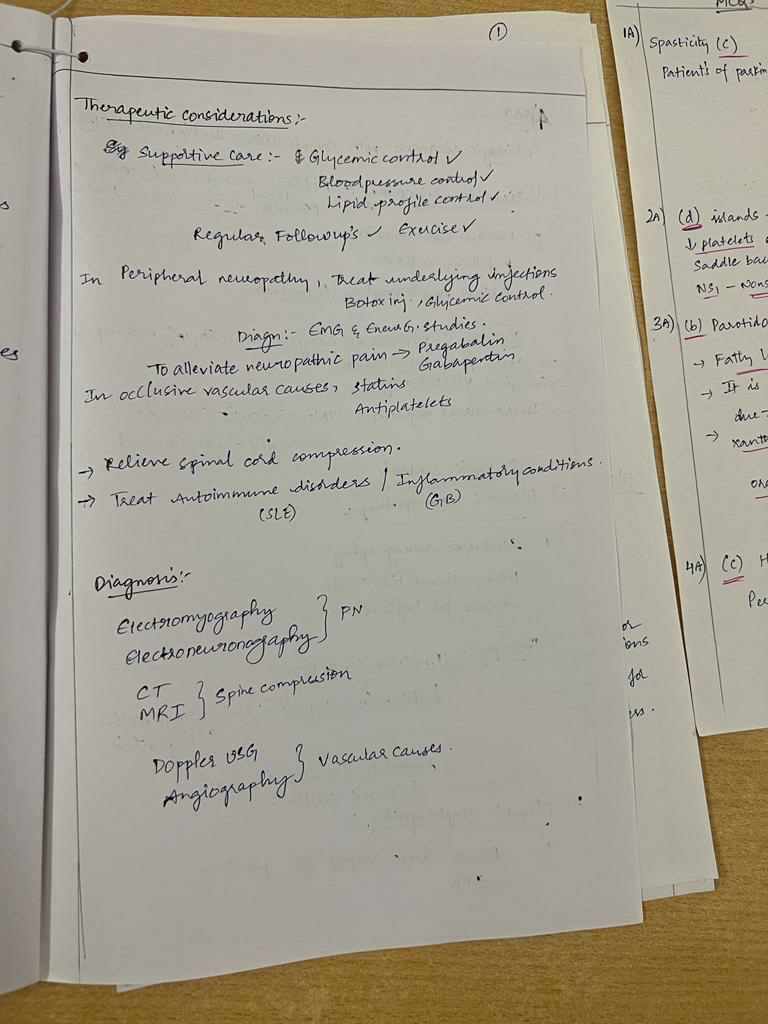 1
Therapeutic considerations:-
Supportive Care:- Glycemic control ✓
Blood pressure control ✓
Lipid profile control ✓
Regular Followup's ✓ Exercise ✓
In Peripheral neuropathy, Treat underlying injections
Botox inj, Glycemic control.
Diagn:- EMG & EneuG. studies.
To alleviate neuropathic pain → Pregabalin
Gabapentin
In occlusive vascular causes, statins
Antiplatelets
→ Relieve spinal cord compression.
→ Treat Autoimmune disorders / Inflammatory conditions.
(SLE) (GB)
Diagnosis:-
Electromyography
Electroneuronography } PN
CT
MRI } Spine compression
Doppler USG
Angiography } Vascular causes.
es
or
ions
for
MCQs
1A) Spasticity (c)
Patient's of parkin
2A) (d) islands
↓ platelets
Saddle bac
NS1 - Nons
3A) (b) Parotido
→ Fatty
→ It is
due
→ xanth
4A) (c) H
Pee